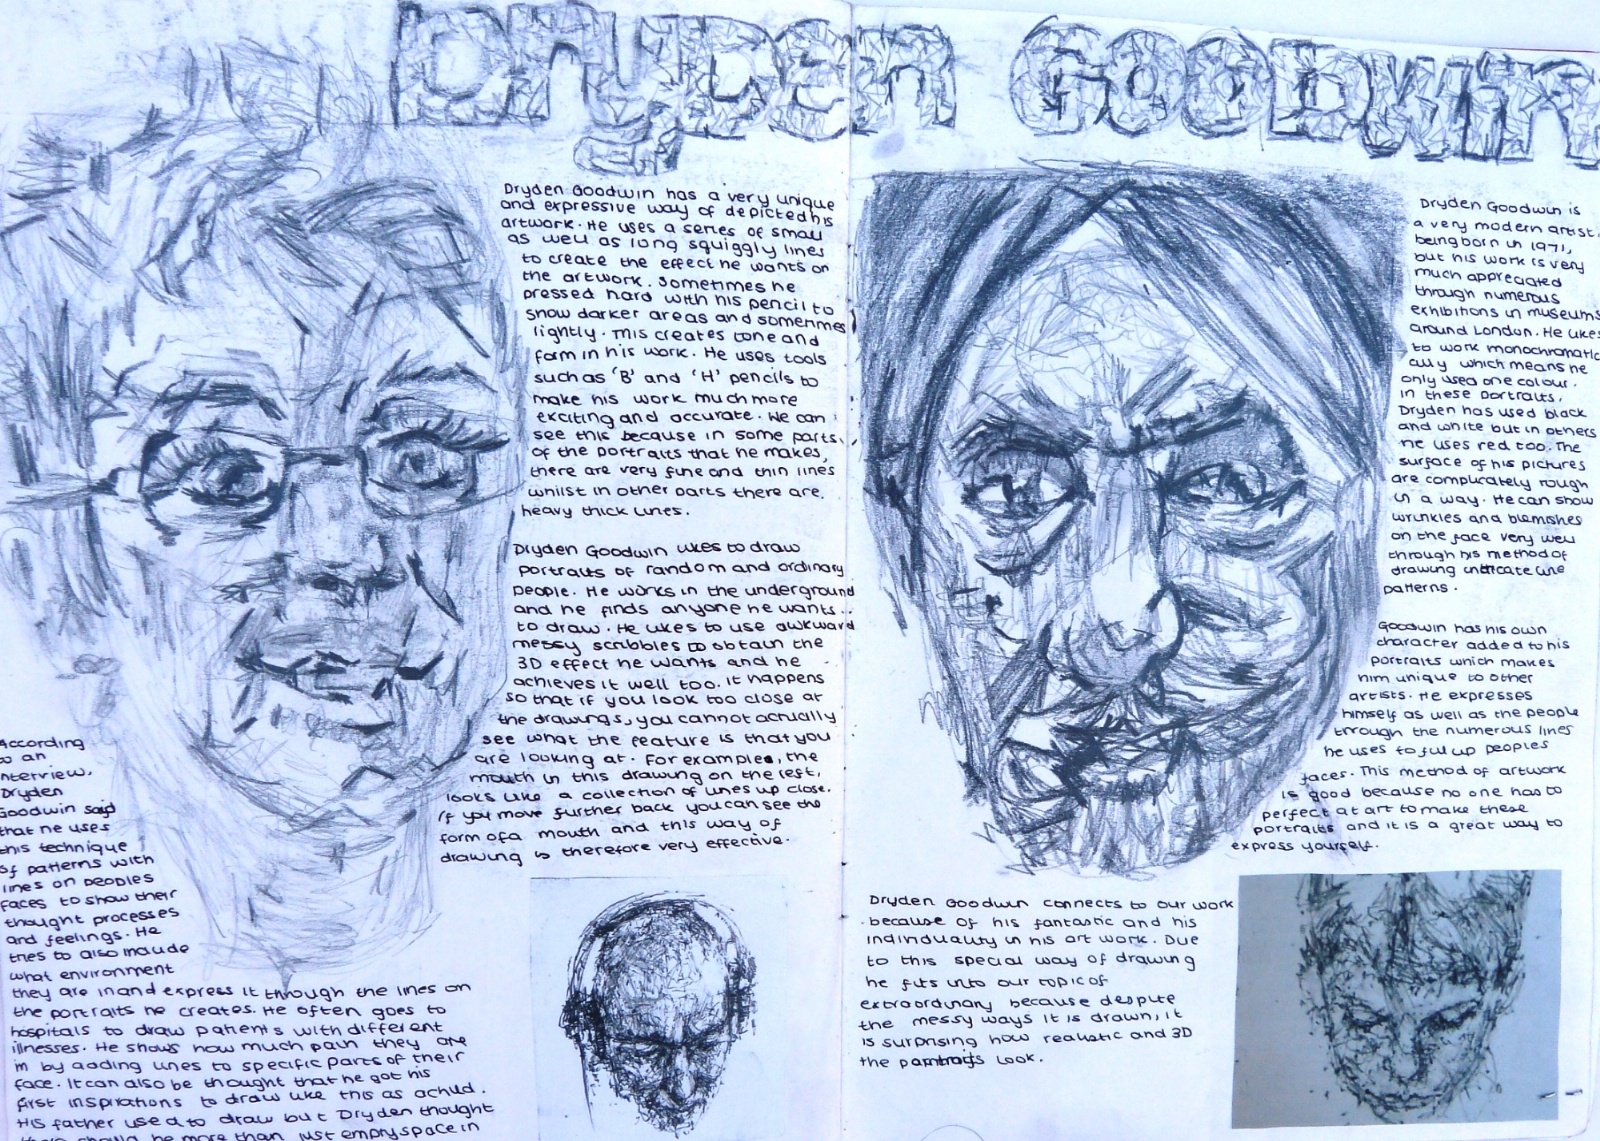 DRYDEN GOODWIN
Dryden Goodwin has a very unique
and expressive way of depicted his
artwork. He uses a series of small
as well as long squiggly lines
to create the effect he wants on
the artwork. Sometimes he
pressed hard with his pencil to
show darker areas and sometimes
lightly. This creates tone and
form in his work. He uses tools
such as 'B' and 'H' pencils to
make his work much more
exciting and accurate. We can
see this because in some parts
of the portraits that he makes,
there are very fine and thin lines
whilst in other parts there are
heavy thick lines.
Dryden Goodwin likes to draw
portraits of random and ordinary
people. He works in the underground
and he finds anyone he wants
to draw. He likes to use awkward
messy scribbles to obtain the
3D effect he wants and he
achieves it well too. It happens
so that if you look too close at
the drawings, you cannot actually
see what the feature is that you
are looking at. For example, the
mouth in this drawing on the left,
looks like a collection of lines up close.
If you move further back you can see the
form of a mouth and this way of
drawing is therefore very effective.
According
to an
interview,
Dryden
Goodwin said
that he uses
this technique
of patterns with
lines on peoples
faces to show their
thought processes
and feelings. He
tries to also include
what environment
they are in and express it through the lines on
the portraits he creates. He often goes to
hospitals to draw patients with different
illnesses. He shows how much pain they are
in by adding lines to specific parts of their
face. It can also be thought that he got his
first inspirations to draw like this as a child.
His father used to draw but Dryden thought
there should be more than just empty space in
Dryden Goodwin is
a very modern artist,
being born in 1971,
but his work is very
much appreciated
through numerous
exhibitions in museums
around London. He likes
to work monochromatic
ally which means he
only used one colour.
In these portraits,
Dryden has used black
and white but in others
he uses red too. The
surface of his pictures
are complicately rough
in a way. He can show
wrinkles and blemishes
on the face very well
through his method of
drawing intricate line
patterns.
Goodwin has his own
character added to his
portraits which makes
him unique to other
artists. He expresses
himself as well as the people
through the numerous lines
he uses to ful up peoples
faces. This method of artwork
is good because no one has to
perfect at art to make these
portraits and it is a great way to
express yourself.
Dryden Goodwin connects to our work
because of his fantastic and his
individuality in his art work. Due
to this special way of drawing
he fits into our topic of
extraordinary because despite
the messy ways it is drawn, it
is surprising how realistic and 3D
the portraits look.